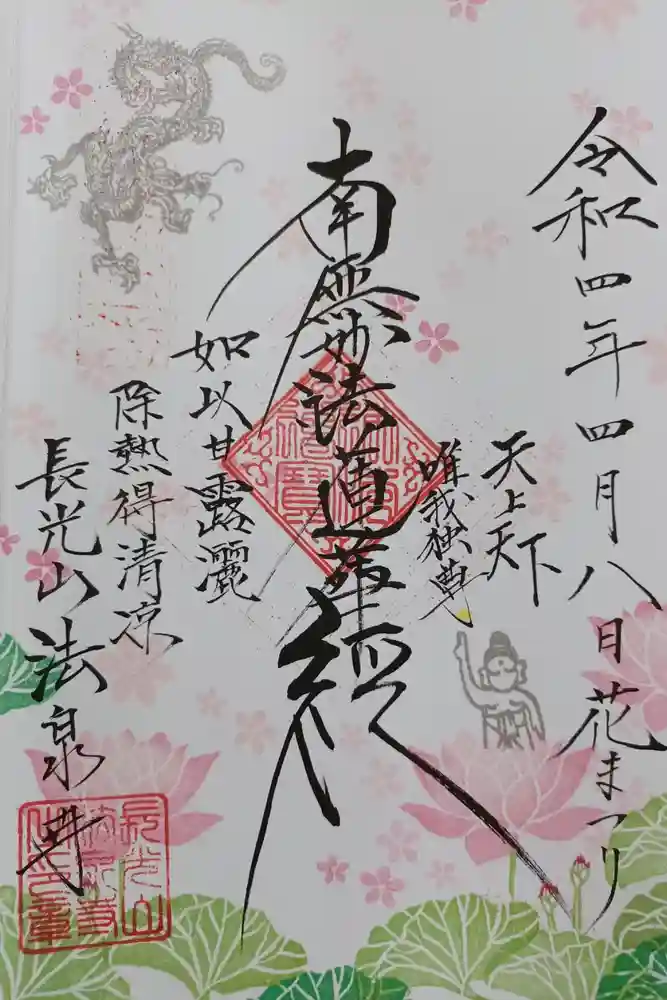 令和四年四月八日花まつり
天上天下
唯我独尊
南無妙法蓮華経
如以甘露灑
除熱得清凉
長光山法泉寺